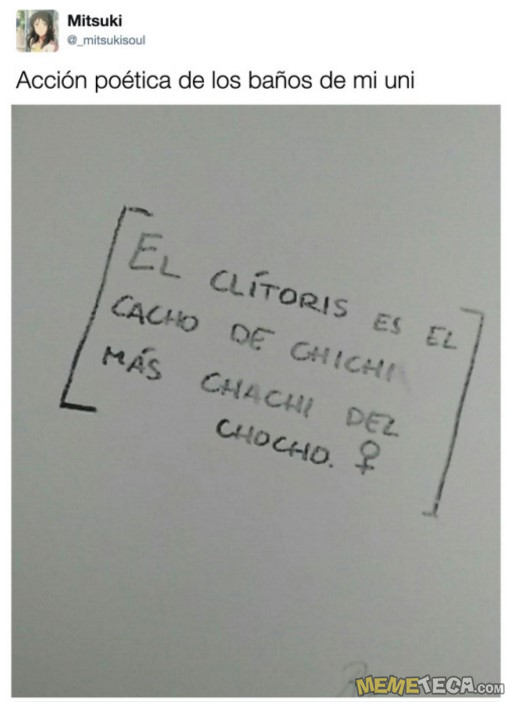 Mitsuki
@_mitsukisoul
Acción poética de los baños de mi uni
EL CLÍTORIS ES EL
CACHO DE CHICHI
MÁS CHACHI DEL
CHOCHO. ♀
MEMETECA.COM